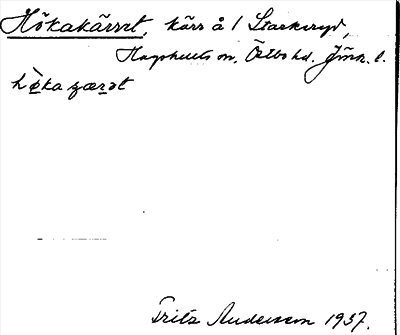 Hökakärret, kärr å 1 Starkeryd,
Hagshults sn, Östbo hd. Jönk. l.
hø̀ka ɟæṟət
Fritz Andersson 1937.